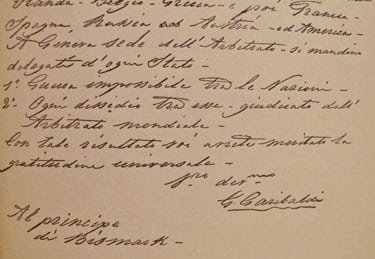 Olanda - Belgio - Grecia - e poi Francia -
Spagna, Russia ed Austria - ed America -
A Genova sede dell'Arbitrato - si mandino
delegati d'ogni Stato -
1° Guerra impossibile tra le Nazioni -
2° Ogni dissidio tra esse - giudicato dall'
Arbitrato mondiale -
Con tale resultato voi avrete meritato la
gratitudine universale -
G. Garibaldi
Al principe
di Bismark -